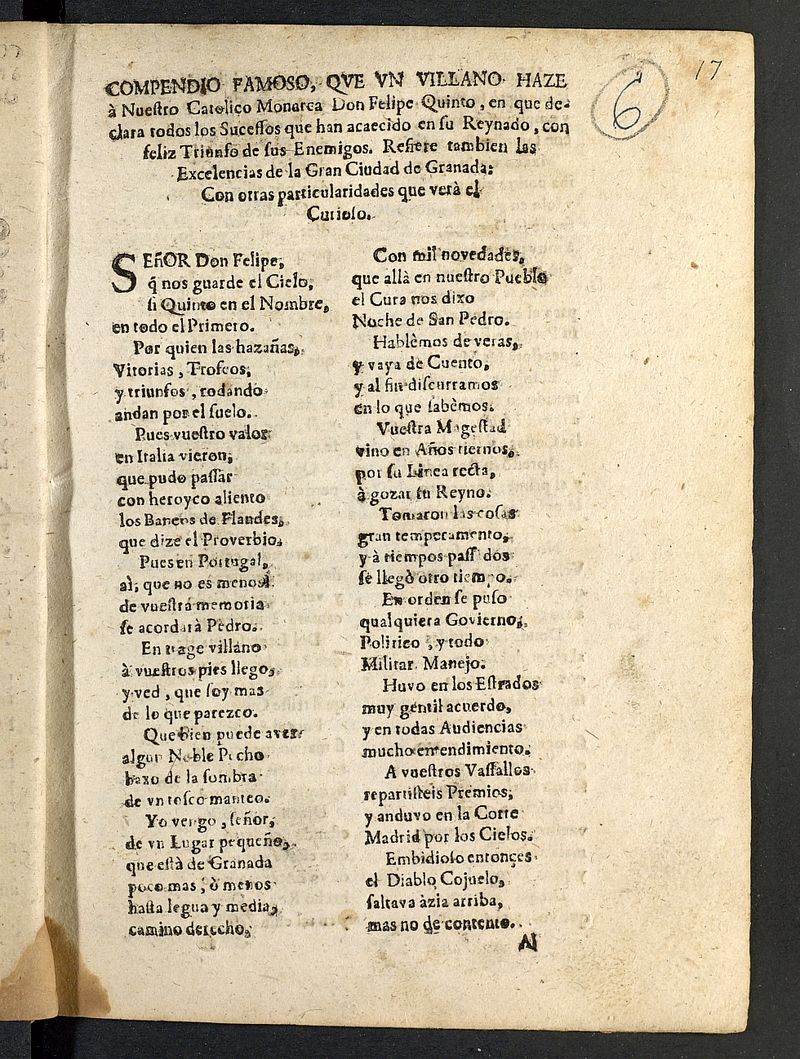 17
6
COMPENDIO FAMOSO, QVE VN VILLANO HAZE
à Nueſtro Catolico Monarca Don Felipe Quinto, en que de-
clara todos los Suceſſos que han acaecido en ſu Reynado, con
feliz Triunfo de ſus Enemigos. Refiere tambien las
Excelencias de la Gran Ciudad de Granada:
Con otras particularidades que verà el
Curioſo.
SEñOR Don Felipe,
q̃ nos guarde el Cielo,
ſi Quinto en el Nombre,
en todo el Primero.
Por quien las hazañas,
Vitorias, Trofeos,
y triunfos, rodando
andan por el ſuelo.
Pues vueſtro valor
en Italia vieron,
que pudo paſſar
con heroyco aliento
los Bancos de Flandes,
que dize el Proverbio.
Pues en Portugal,
aì, que no es menos!
de vueſtra memoria
ſe acordarà Pedro.
En trage villano
à vueſtros pies llego,
y ved, que ſoy mas
de lo que parezco.
Que bien puede aver
algun Noble Pecho
baxo de la ſombra
de vn toſco manteo.
Yo vengo, ſeñor,
de vn Lugar pequeño,
que eſtà de Granada
poco mas, ò menos
haſta legua y media,
camino derecho,
Con mil novedades,
que allà en nueſtro Pueblo
el Cura nos dixo
Noche de San Pedro.
Hablèmos de veras,
y vaya de Cuento,
y al fin diſcurramos
en lo que ſabèmos.
Vueſtra Mageſtad
vino en Años tiernos,
por ſu Linea recta,
à gozar ſu Reyno.
Tomaron las coſas
gran temperamento,
y à tiempos paſſados
ſe llegò otro tiempo.
En orden ſe puſo
qualquiera Govierno,
Politico, y todo
Militar Manejo.
Huvo en los Eſtrados
muy gentil acuerdo,
y en todas Audiencias
mucho entendimiento.
A vueſtros Vaſſallos
repartiſteis Premios,
y anduvo en la Corte
Madrid por los Cielos.
Embidioſo entonçes
el Diablo Cojuelo,
ſaltava àzia arriba,
mas no de contento.
Al